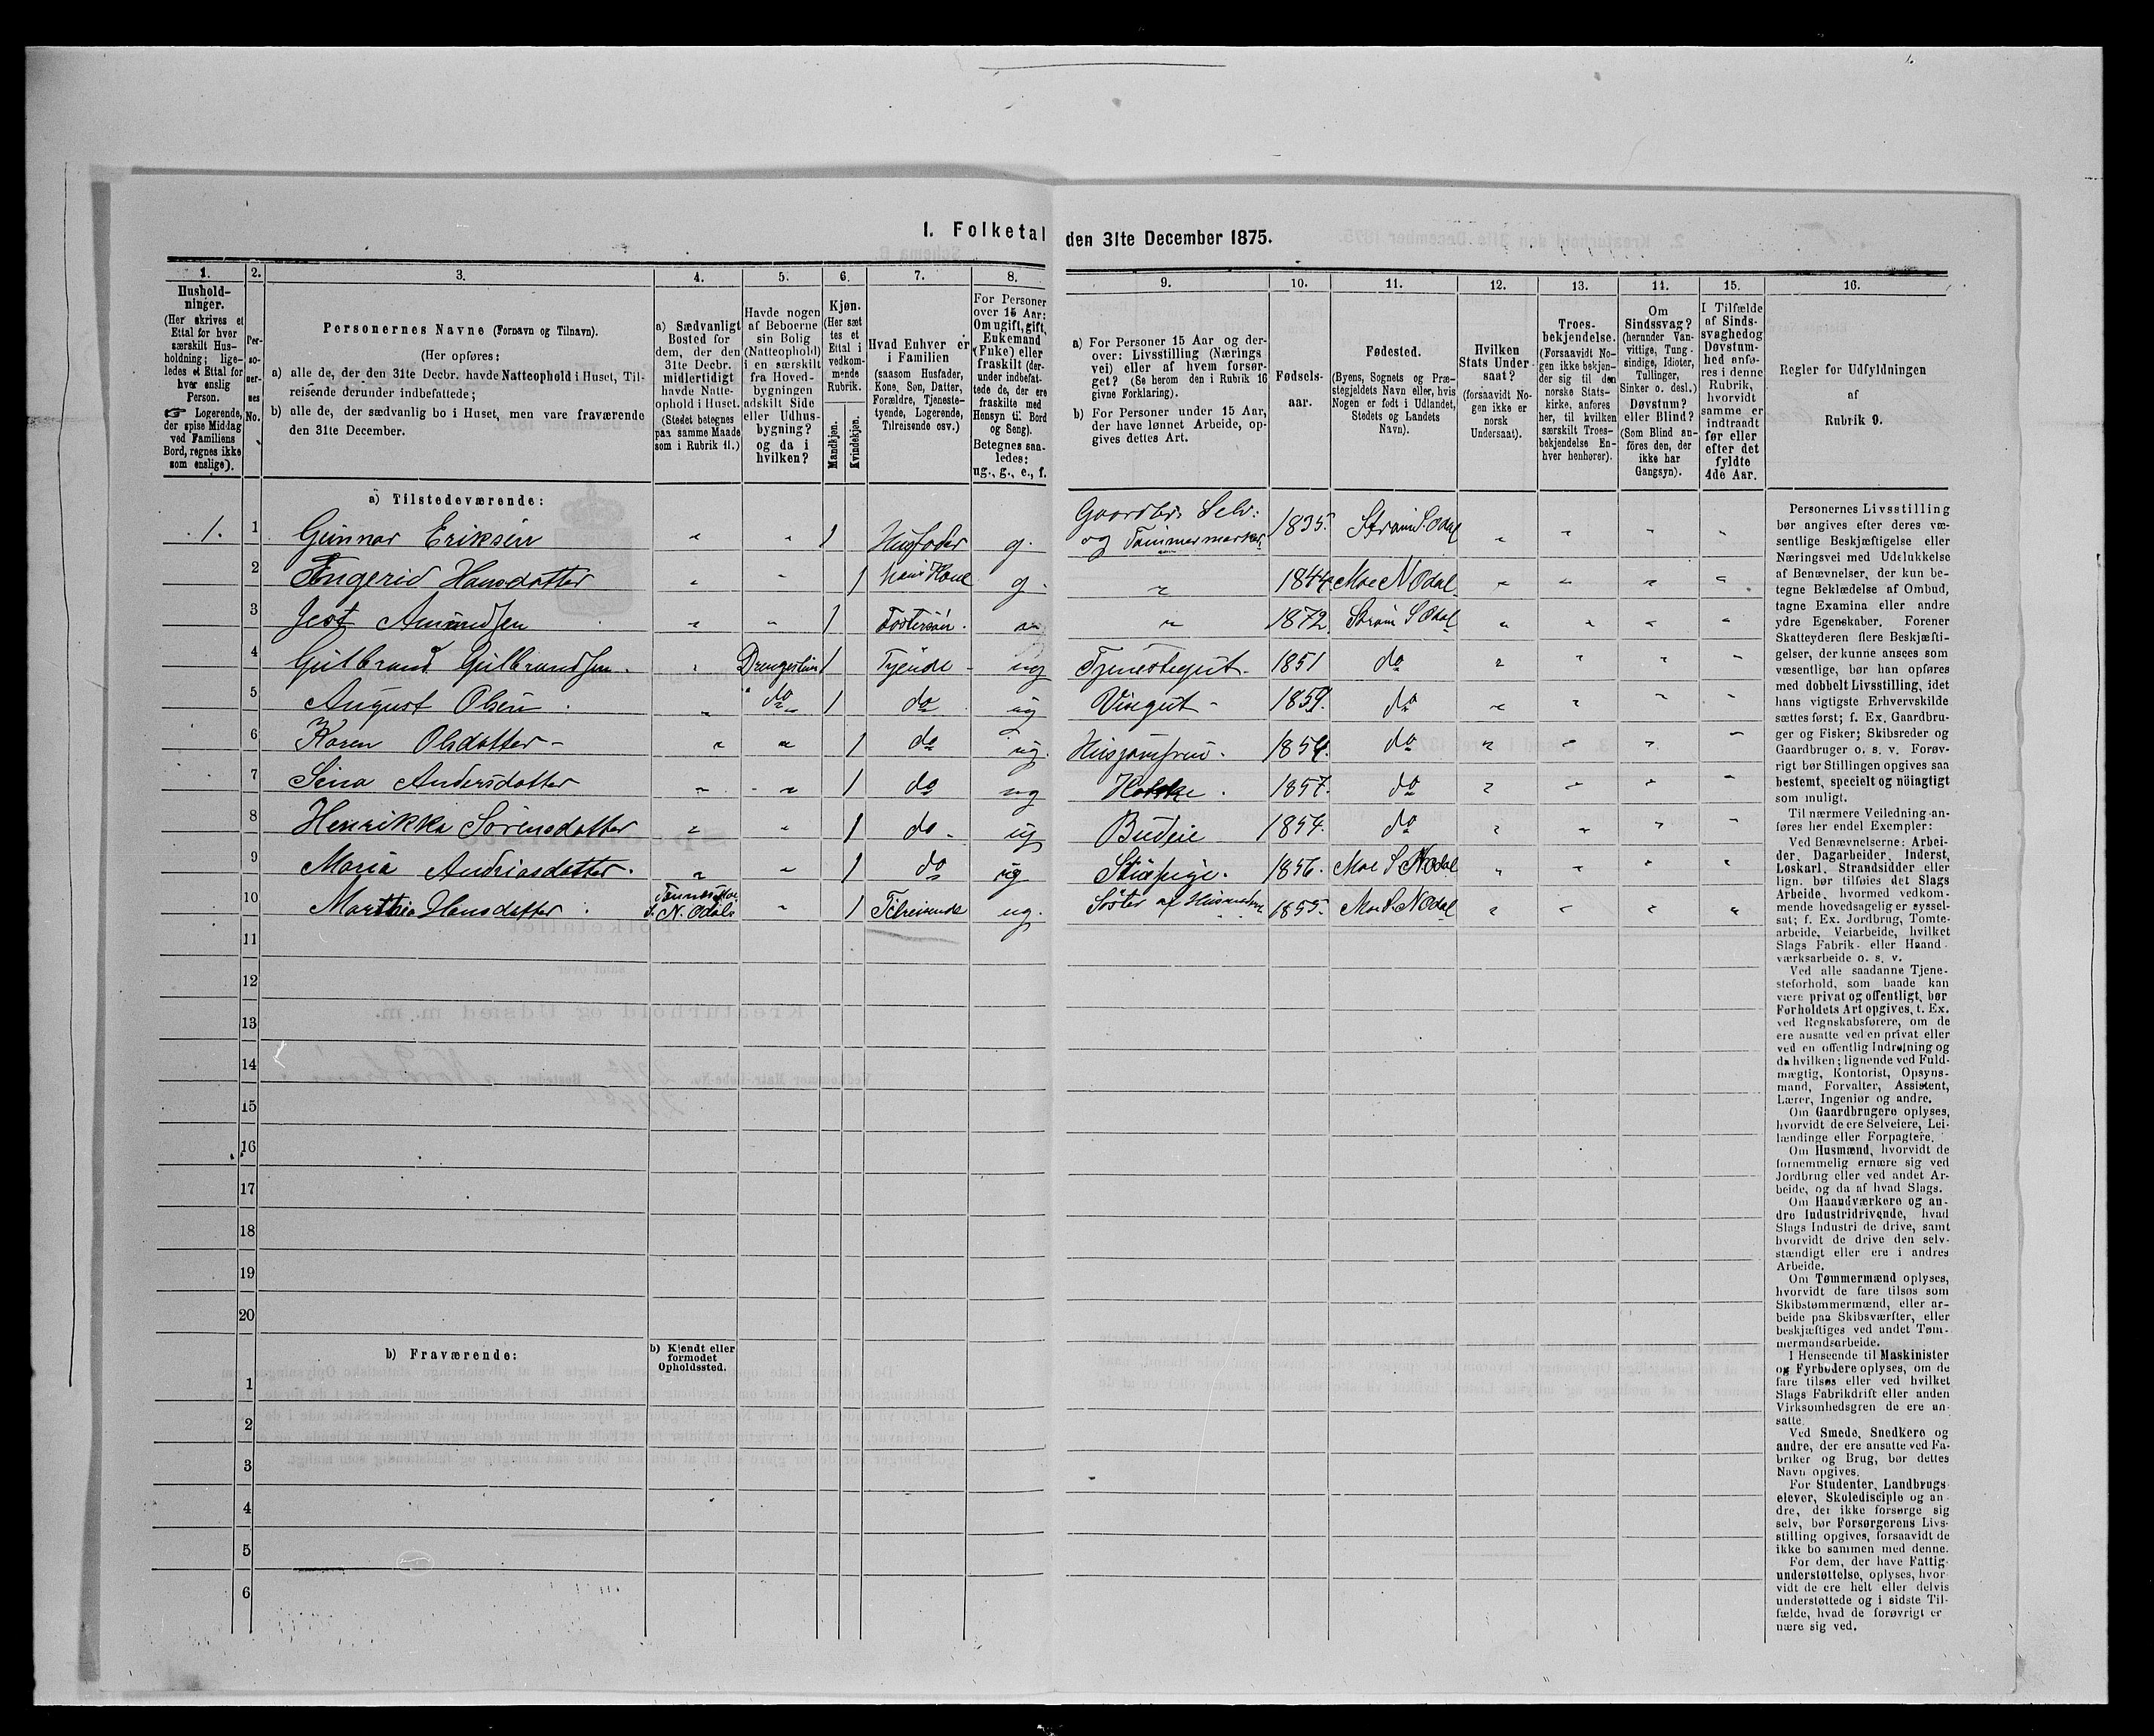 I. Folketal den 31te December 1875.
1. 2. 3. 4. 5. 6. 7. 8. 9. 10. 11. 12. 13. 14. 15. 16.
Hushold-
ninger.
(Her skrives et
Ettal for hver
særskilt Hus-
holdning; lige-
ledes et Ettal for
hver enslig
Person.
☞ Logerende,
der spise Middag
ved Familiens
Bord, regnes ikke
som enslige).
Per-
so-
ner-
nes
No.
Personernes Navne (Fornavn og Tilnavn).
(Her opføres:
a) alle de, der den 31te Decbr. havde Natteophold i Huset, Til-
reisende derunder indbefattede;
b) alle de, der sædvanlig bo i Huset, men vare fraværende
den 31te December.
a) Sædvanligt
Bosted for
dem, der den
31te Decbr.
midlertidigt
havde Natte-
ophold i Huset.
(Stedet betegnes
paa samme Maade
som i Rubrik 11.)
Havde nogen
af Beboerne
sin Bolig
(Natteophold)
i en særskilt
fra Hoved-
bygningen
adskilt Side
eller Udhus-
bygning?
og da i
hvilken?
Kjøn.
(Her sæt
tes et
Ettal i
vedkom-
mende
Rubrik.
Mandkjøn.
Kvindekjøn.
Hvad Enhver er
i Familien
(saasom Husfader,
Kone, Søn, Datter,
Forældre, Tjeneste-
tyende, Logerende,
Tilreisende osv.)
For Personer
over 15 Aar:
Om ugift, gift,
Enkemand
(Enke) eller
fraskilt (der-
under indbefat-
tede de, der ere
fraskilte med
Hensyn til Bord
og Seng).
Betegnes saa-
ledes:
ug., g., e., f.
a) For Personer 15 Aar og der-
over: Livsstilling (Nærings
vei) eller af hvem forsør-
get? (Se herom den i Rubrik 16
givne Forklaring).
b) For Personer under 15 Aar,
der have lønnet Arbeide, op-
gives dettes Art.
Fødsels-
aar.
Fødested.
(Byens, Sognets og Præ-
stegjeldets Navn eller, hvis
Nogen er født i Udlandet,
Stedets og Landets
Navn).
Hvilken
Stats Under
saat?
(forsaavidt No-
gen ikke er
norsk
Undersaat).
Troes-
bekjendelse.
(Forsaavidt No-
gen ikke bekjen-
der sig til den
norske Stats-
kirke, anføres
her, til hvilken
særskilt Troes-
bekjendelse En-
hver henhører).
Om
Sindssvag?
(herunder Van-
vittige, Tung-
sindige, Idioter,
Tullinger,
Sinker o. desl.)
Døvstum?
eller Blind?
(Som Blind an-
føres den, der
ikke har
Gangsyn).
I Tilfælde
af Sinds-
svaghed og
Døvstum-
hed anfø-
res i denne
Rubrik,
hvorvidt
samme er
indtraadt
før eller
efter det
fyldte
4de Aar.
Regler for Udfyldningen
af
Rubrik 9.
a) Tilstedeværende:
.1. 1 Gunnar Eriksen " " 1 Husfader g. Gaardbr. Selv: og Tømmermærker 1835. Strøm S. Odal " " " "
2 Engerid Hansdatter " " 1 hans Kone g. " 1844. Moe N Odal " " " "
3 Amundsen " " 1 Fostersøn. " " 1872. Strøm S Odal " " " "
4 Gulbrand Gulbrandsen. " 1 Tyende ug Tjenestegut. 1851 do " " " "
5 August Olsen " do 1 do ug Visegut 1859. do " " " "
6 Karen Olsdatter " " 1 do ug. Husjomfru. do " " " "
7 Sina Andersdatter " " 1 do ug Kokke. 1857. do " " " "
8 Henrikka Sørensdatter " " 1 do ug Budeie do " " " "
9 Maria Andriasdatter. " " 1 do ug Stuepige. 1856. Moe S N Odal " " " "
10 Marthia Hansdatter. S. N. Odals " 1 Tilreisende ug. Søster af Husmoder 1855. Moe S N Odal " " " "
11
12
13
14
15
16
17
18
19
20
b) Fraværende:
b) Kjendt eller
formodet
Opholdssted.
1
2
3
4
5
6
Personernes Livsstilling
bør angives efter deres væ-
sentlige Beskjæftigelse eller
Næringsvei med Udelukkelse
af Benævnelser, der kun be-
tegne Beklædelse af Ombud,
tagne Examina eller andre
ydre Egenskaber. Forener
Skatteyderen flere Beskjæfti-
gelser, der kunne ansees som
væsentlige, bør han opføres
med dobbelt Livsstilling, idet
hans vigtigste Erhvervskilde
sættes først; f. Ex. Gaardbru-
ger og Fisker; Skibsreder og
Gaardbruger o. s. v. Forøv-
rigt bør Stillingen opgives saa
bestemt, specielt og nöiagtigt
som muligt.
Til nærmere Veiledning an-
føres her endel Exempler:
Ved Benævnelserne: Arbei-
der, Dagarbeider, Inderst,
Løskarl, Strandsidder eller
lign. bør tilføies det Slags
Arbeide, hvormed vedkom-
mende hovedsagelig er syssel-
sat; f. Ex. Jordbrug, Tomte-
arbeide, Veiarbeide, hvilket
Slags Fabrik- eller Haand-
værksarbeide o. s. v.
Ved alle saadanne Tjene-
steforhold, som baade kan
være privat og offentligt, bør
Forholdets Art opgives, t. Ex.
ved Regnskabsførere, om de
ere ansatte ved en privat eller
ved en offentlig Indretning og
da hvilken; lignende ved Fuld-
mægtig, Kontorist, Opsyns-
mand, Forvalter, Assistent,
Lærer, Ingeniør og andre.
Om Gaardbrugere oplyses,
hvorvidt de ere Selveiere, Lei-
lændinge eller Forpagtere.
Om Husmænd, hvorvidt de
fornemmelig ernære sig ved
Jordbrug eller ved andet Ar-
beide, og da af hvad Slags.
Om Haandværkere og an-
dre Industridrivende, hvad
Slags Industri de drive, samt
hvorvidt de drive den selv-
stændigt eller ere i andres
Arbeide.
Om Tømmermænd oplyses,
hvorvidt de fare tilsøs som
Skibstømmermænd, eller ar-
beide paa Skibsværfter, eller
beskjæftiges ved andet Tøm-
mermandsarbeide.
I Henseende til Maskinister
og Fyrbødere oplyses, om de
fare tilsøs eller ved hvilket
Slags Fabrikdrift eller anden
Virksomhedsgren de ere an-
satte.
Ved Smede, Snedkere og
andre, der ere ansatte ved Fa-
briker og Brug, bør dettes
Navn opgives.
For Studenter, Landbrugs-
elever, Skoledisciple og an-
dre, der ikke forsørge sig
selv, bør Forsørgerens Livs-
stilling opgives, forsaavidt de
ikke bo sammen med denne.
For dem, der have Fattig-
understøttelse, oplyses, hvor-
vidt de ere helt eller delvis
understøttede og i sidste Til-
fælde, hvad de forøvrigt er
nære sig ved.